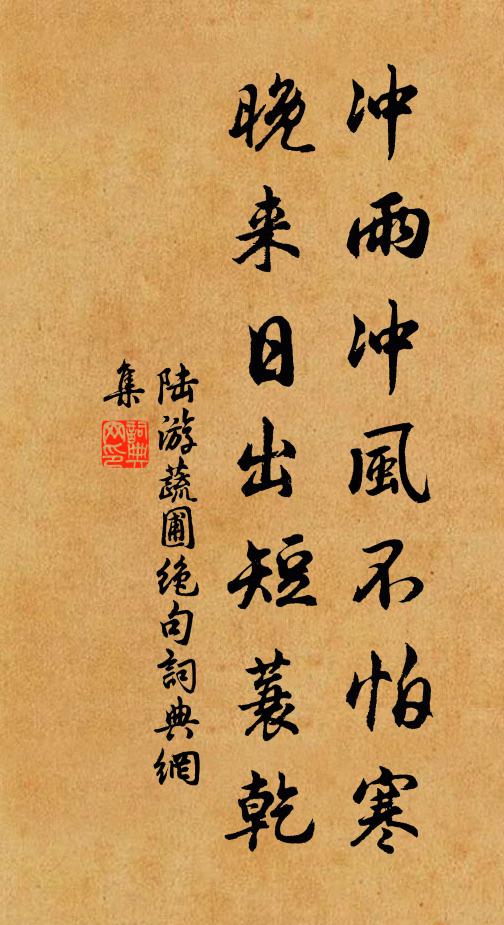 冲雨冲風不怕寒
晚来日出短蓑乾
陆游蔬圃绝句詞典網
集
詞典网印